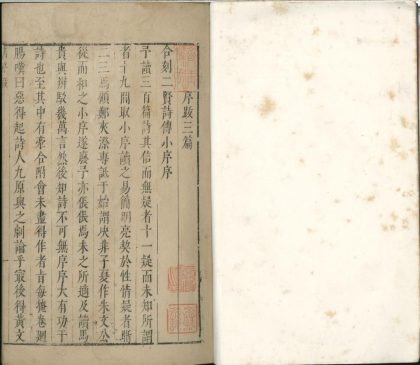 序跋三篇
合刻二賢詩傳小序序
予讀三百篇詩其信而無疑者十一疑而未知所謂
者十九間取小序讀之易簡明亮契於性情疑者斷
二三馬顛鄭夾漈專詆于始謂决非子夏作朱文公
從而和之小序遂廢予亦倀倀焉未之所適及讀馬
貴與辯駁幾萬言然後知詩不可無序序大有功于
詩也至其中有牽合附會未盡得作者吉每掩卷廽
腸嘆曰惡得起詩人九原與之劇論乎㝡後得黃文